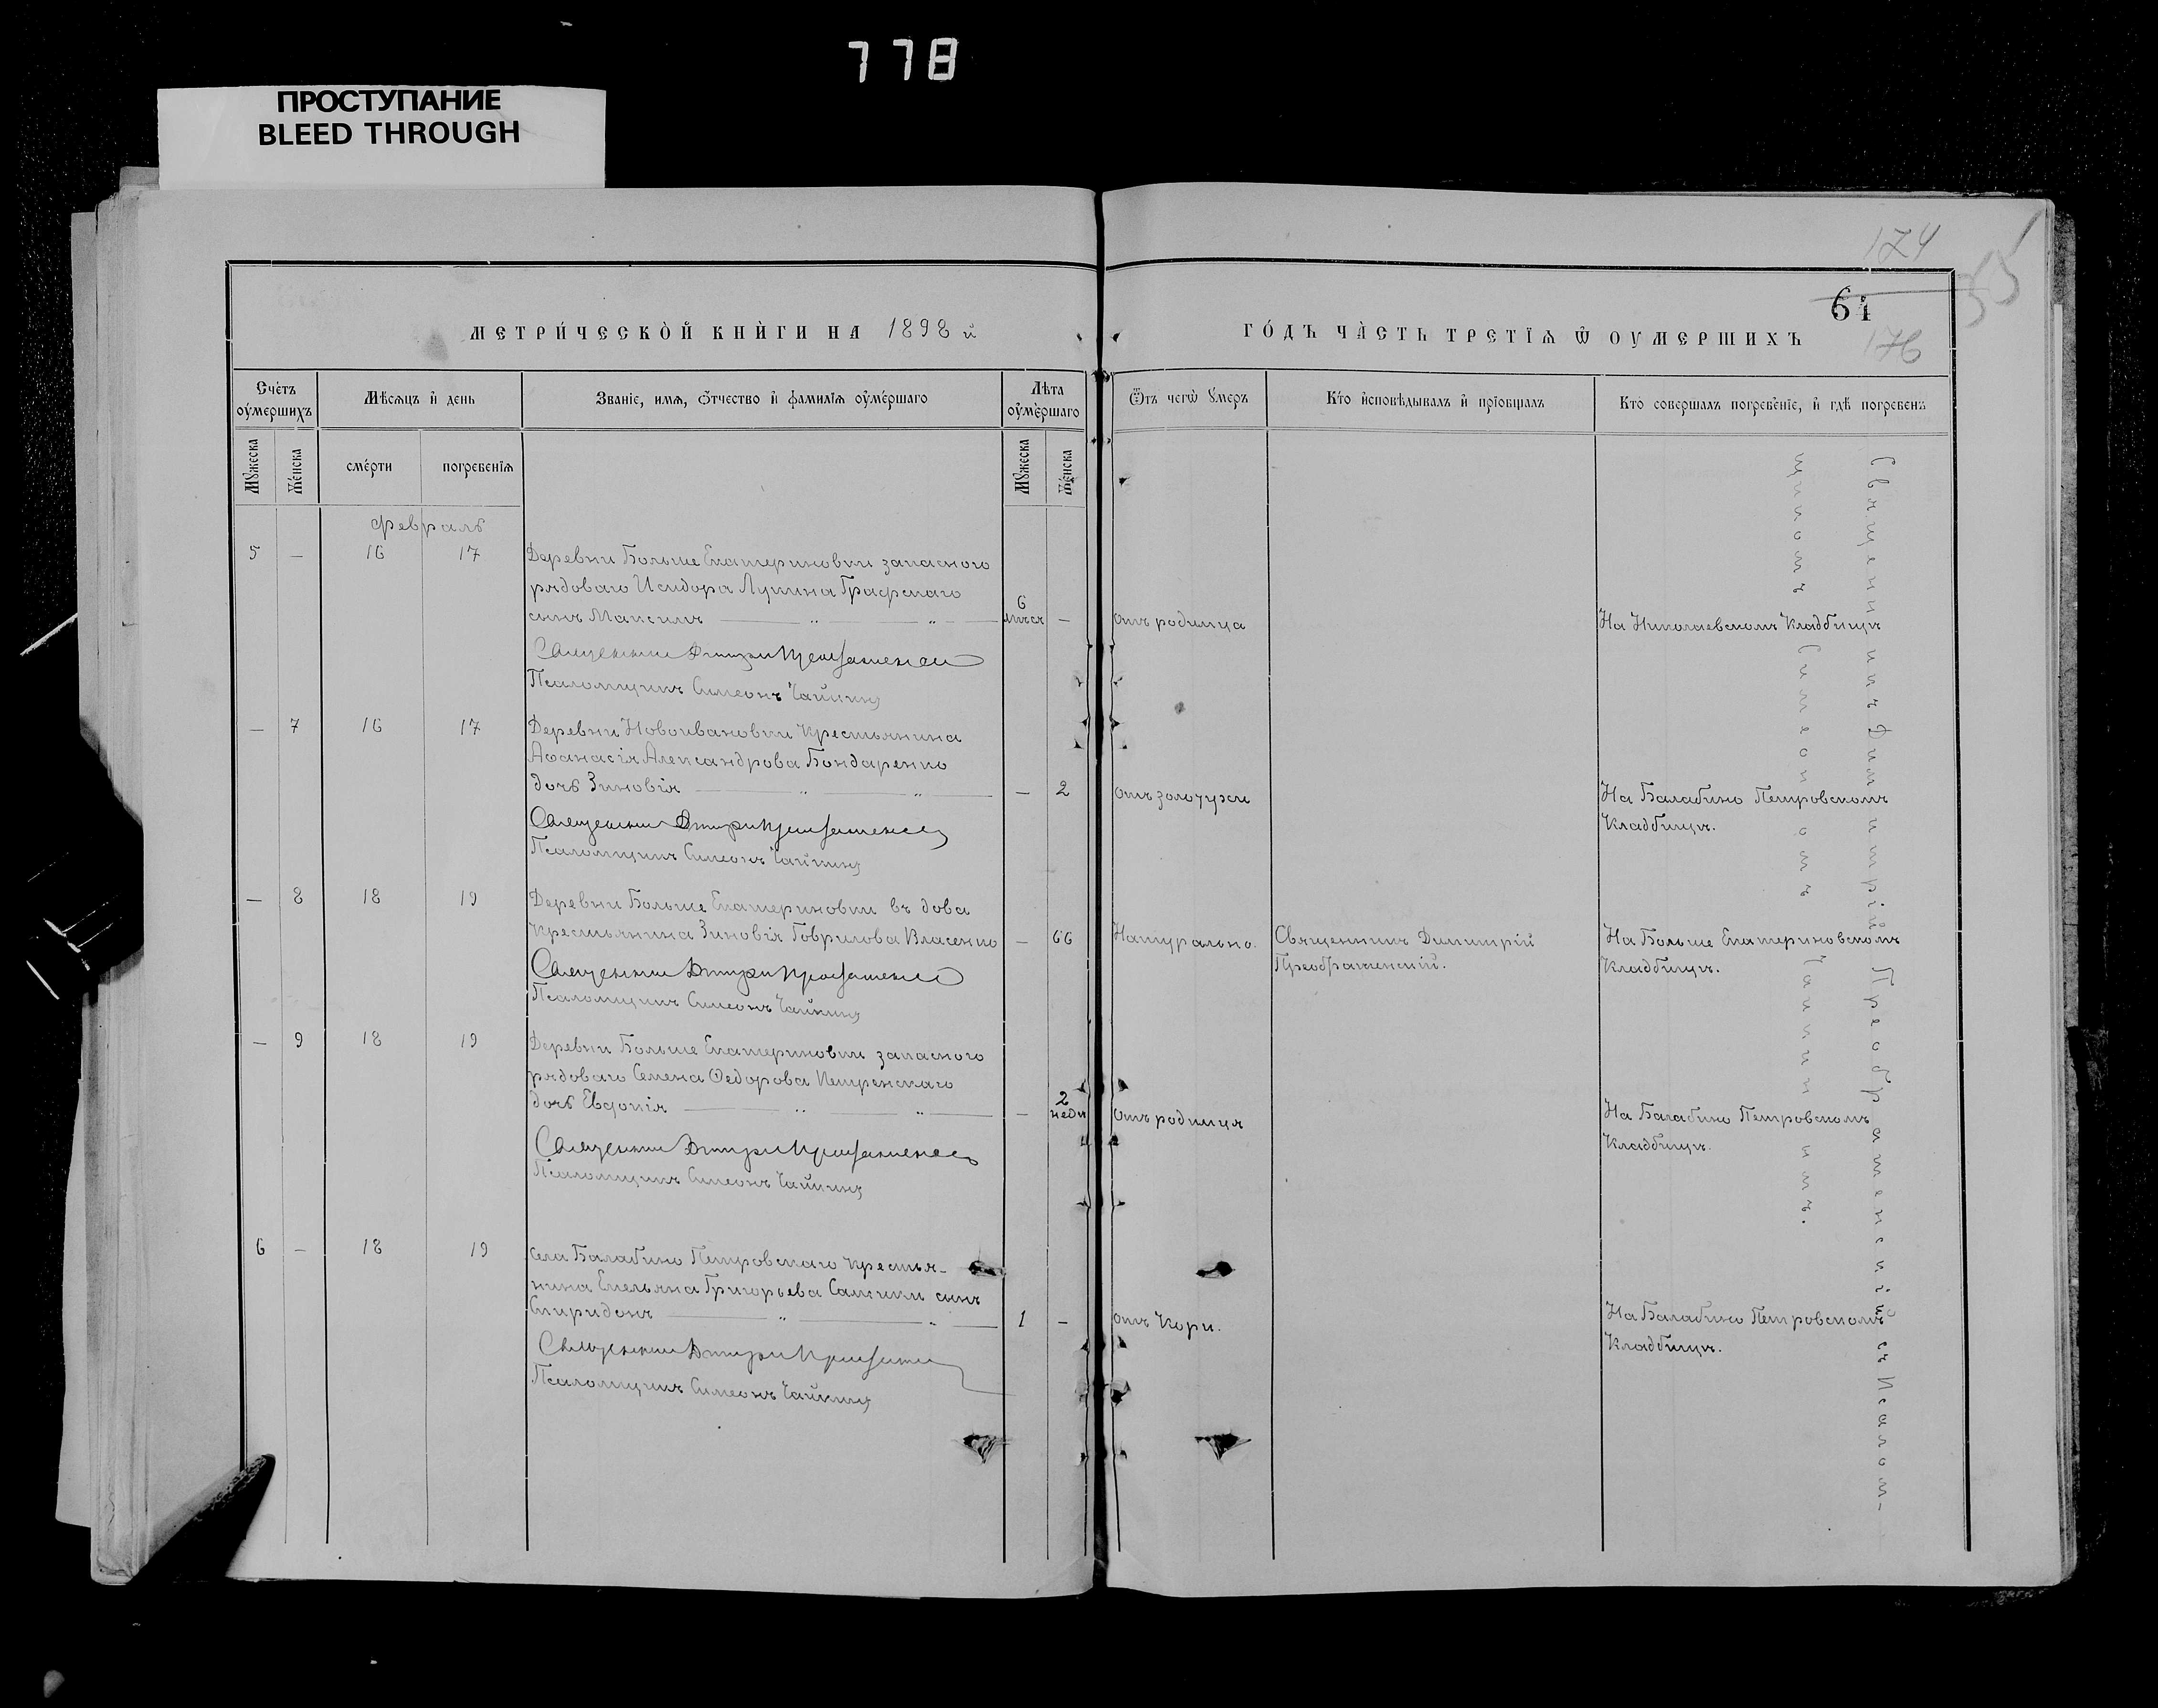 778
ПРОСТУПАНИЕ
BLEED THROUGH
174
55
61
176
МЕТРИ́ЧЕСКОЙ КНИ́ГИ НА 1898 й
ГО́ДЪ ЧА́СТЬ ТРЕТІѦ Ѿ ОУМЕРШИХЪ
Счетъ оумершихъ
Мѣсяцъ и день
Званіе, имя, отчество и фамилія оумершаго
Лѣта оумершаго
Отъ чегѡ умеръ
Кто исповѣдывалъ и пріобщалъ
Кто совершалъ погребеніе, и гдѣ погребенъ
Мужеска
Женска
смерти
погребенія
Мужеска
Женска
Февраль
5 — 16 17 Деревни Больше Екатериновки запасного
рядоваго Исидора Лукина Графскаго
сынъ Максимъ — „ — „ — 6 мѣся — отъ родимца На Николаевскомъ Кладбищѣ
Священникъ Димитрій Преображенскій
Псаломщикъ Симеонъ Чайкинъ
— 7 16 17 Деревни Новоивановки Крестьянина
Аѳанасія Александрова Бондаренко
дочь Зиновія — „ — „ — — 2 отъ золотухи На Балабино Петровскомъ
Кладбищѣ.
Священникъ Димитрій Преображенскій
Псаломщикъ Симеонъ Чайкинъ
— 8 18 19 Деревни Больше Екатериновки въ дова
Крестьянина Зиновія Гаврилова Власенко — 66 Натурально. Священникъ Димитрій На Больше Екатериновскомъ
Преображенскій. Кладбищѣ.
Священникъ Димитрій Преображенскій
Псаломщикъ Симеонъ Чайкинъ
— 9 18 19 Деревни Больше Екатериновки запасного
рядоваго Семена Ѳедорова Петренскаго
дочь Евдокія — „ — „ — — 2 неди отъ родимца На Балабино Петровскомъ
Кладбищѣ.
Священникъ Димитрій Преображенскій
Псаломщикъ Симеонъ Чайкинъ
6 — 18 19 Села Балабино Петровскаго Крестья-
нина Емельяна Григорьева сынъ
Спиридонъ — „ — „ — 1 — отъ Кори. На Балабино Петровскомъ
Кладбищѣ.
Священникъ Димитрій
Псаломщикъ Симеонъ Чайкинъ
Священникъ Димитрій Преображенскій съ Псалом-
щикомъ Симеономъ Чайкинымъ.